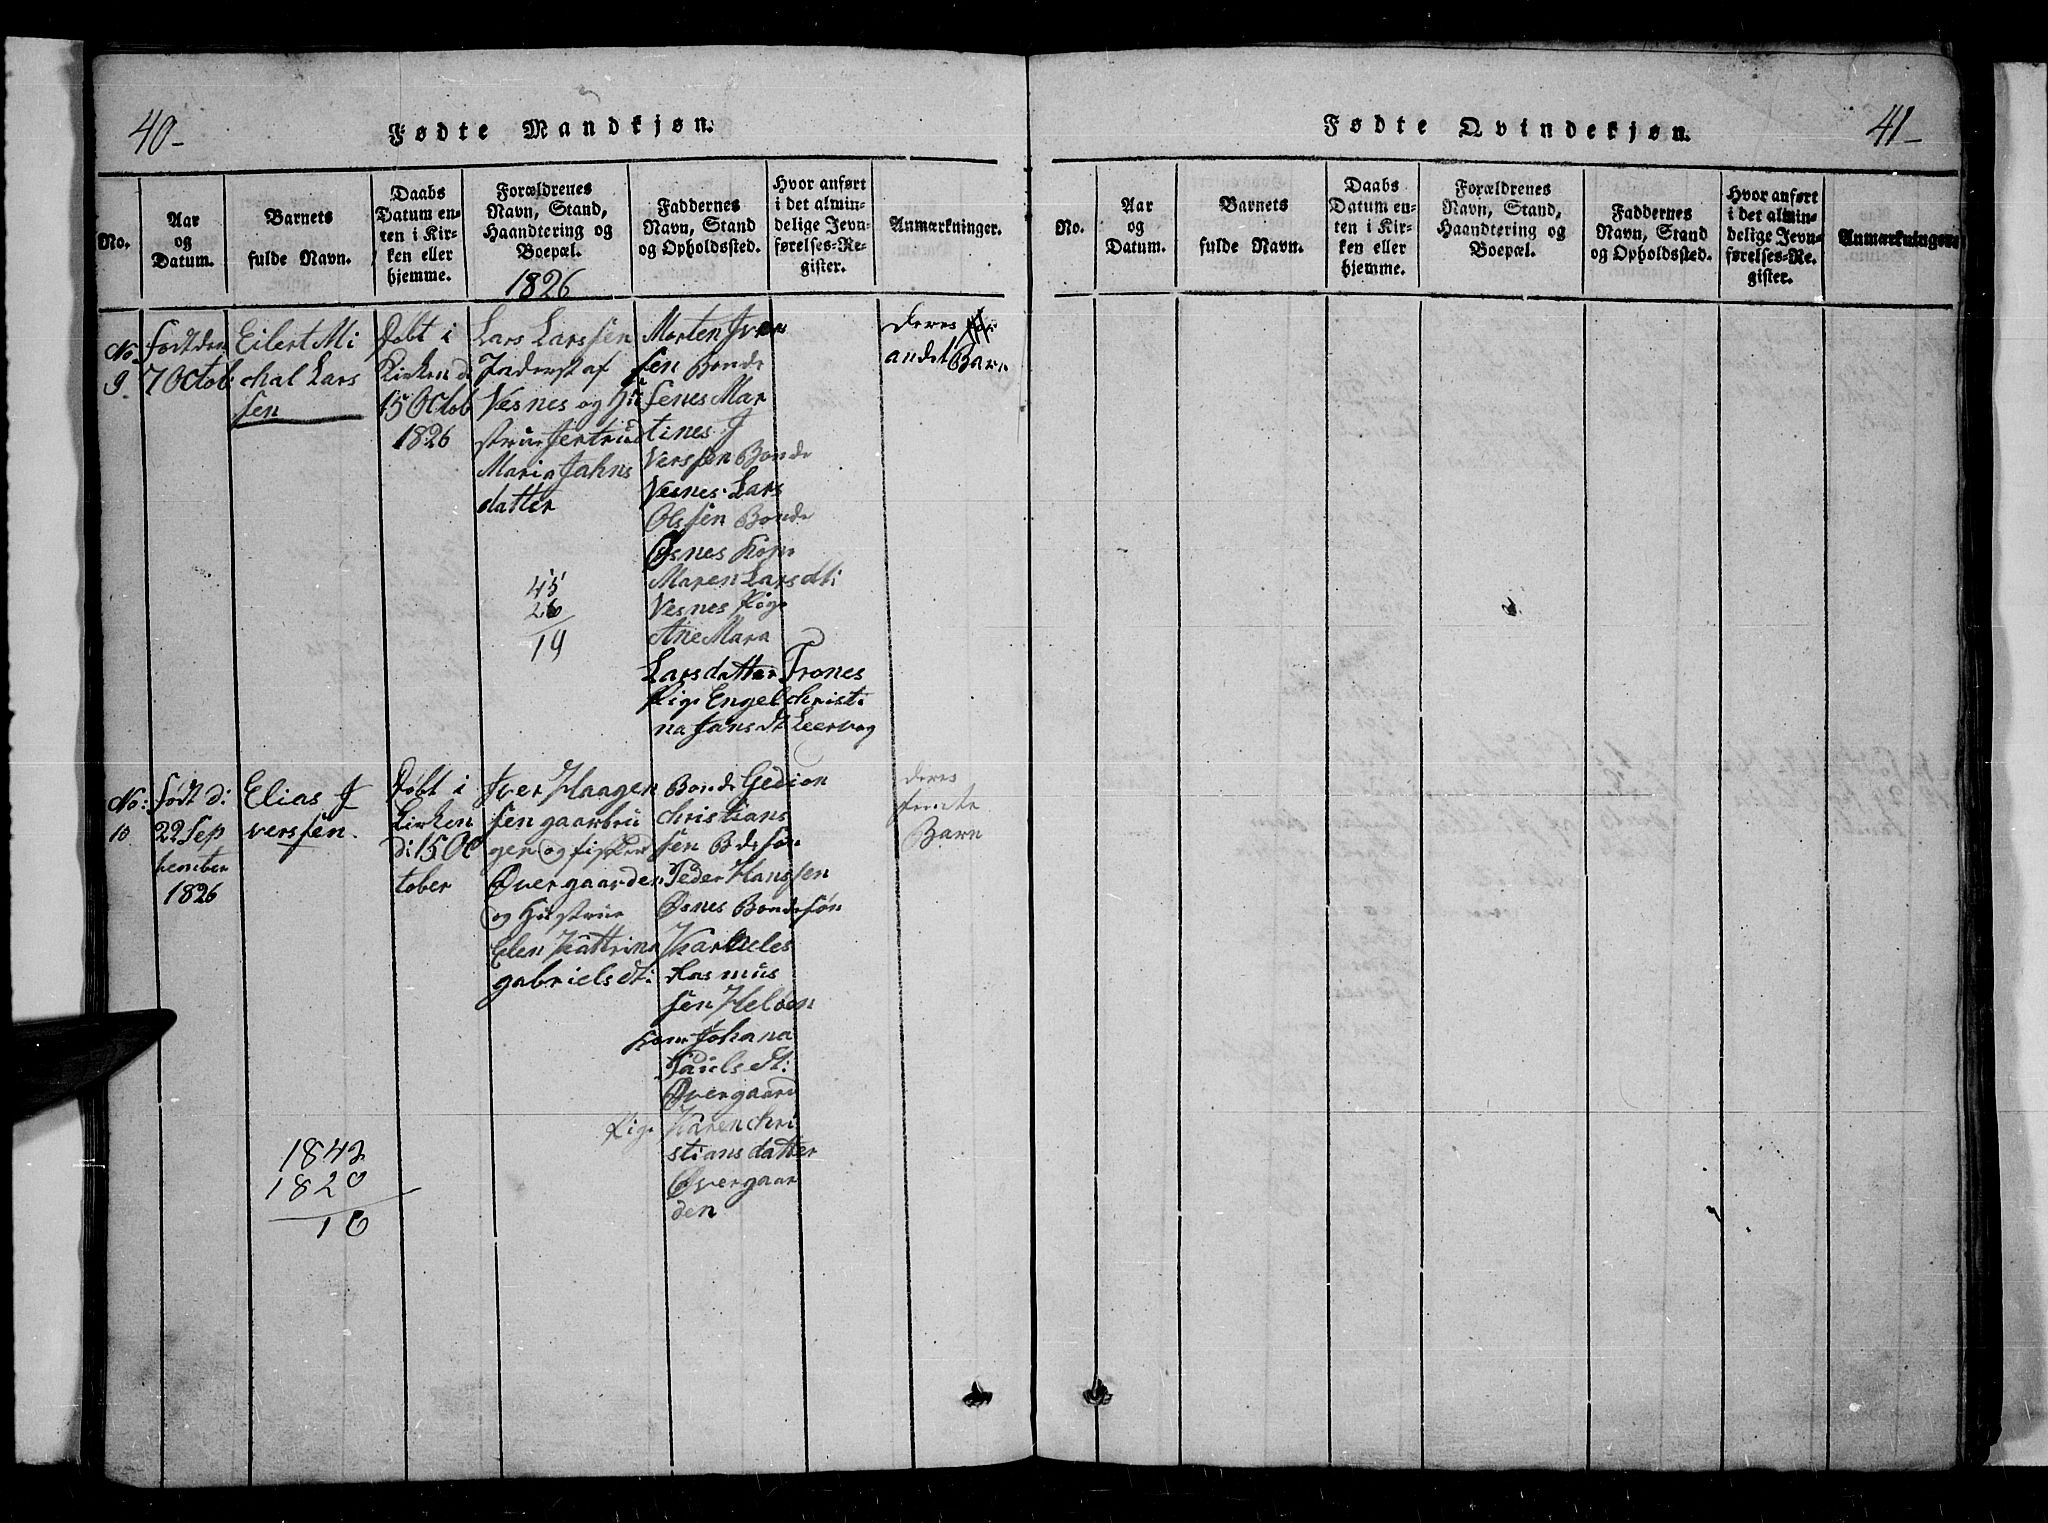 40-
Fødte Mandkjøn.
No.
Aar
og
Datum.
Barnets
fulde Navn.
Daabs
Datum en-
ten i Kir-
ken eller
hjemme.
Forældrenes
Navn, Stand,
Haandtering og
Boepæl.
1826
Faddernes
Navn, Stand
og Opholdssted.
Hvor anført
i det almin-
delige Jevn-
førelses-Re-
gister.
Anmærkninger.
No
9
Født den
7 Octob:
Eilert Mi
chal Lars
sen
Døbt i
Kirken d
15 Octob
1826
Lars Larssen
Inderst af
Vesnes og Hu
strue Jertrud
Maria Jahns
datter
45
26
19
Morten Iver
sen Bonde
Senes Mar
tines I
verssen Bonde
Vesnes Lars
Olssen Bonde
Øsnes Kone
Maren Larsdt:
Vesnes Pige
Ane Mara
Larsdatter Trones
Pige Engel Christi
na Jansdt Leervog
deres
andet Barn
No:
10
Født d:
22 Sep
tember
1826
Elias I
verssen.
Døbt i
Kirken
d: 15 Oc
tober
Iver Haagen
sen gaarbru
ger og fisker
Øvergaarden
og Hustrue
Elen Kattrina
gabrielsdt:
Bonde Gedion
Christians
sen Bdesøn
Peder Hanssen
Øsnes Bondesøn
Karneles
Rasmus
sen Heløen
Kone Johana
Paulsdt:
Øvergaard
Pige Karen Chri
stiansdatter
Øvergaar
den
deres
femte
Barn
1842
1820
16
Fødte Qvindekjøn.
41-
No.
Aar
og
Datum.
Barnets
fulde Navn.
Daabs
Datum en-
ten i Kir-
ken eller
hjemme.
Forældrenes
Navn, Stand,
Haandtering og
Boepæl.
Faddernes
Navn, Stand
og Opholdssted.
Hvor anført
i det almin-
delige Jevn-
førelses-Re-
gister.
Anmærkninger.